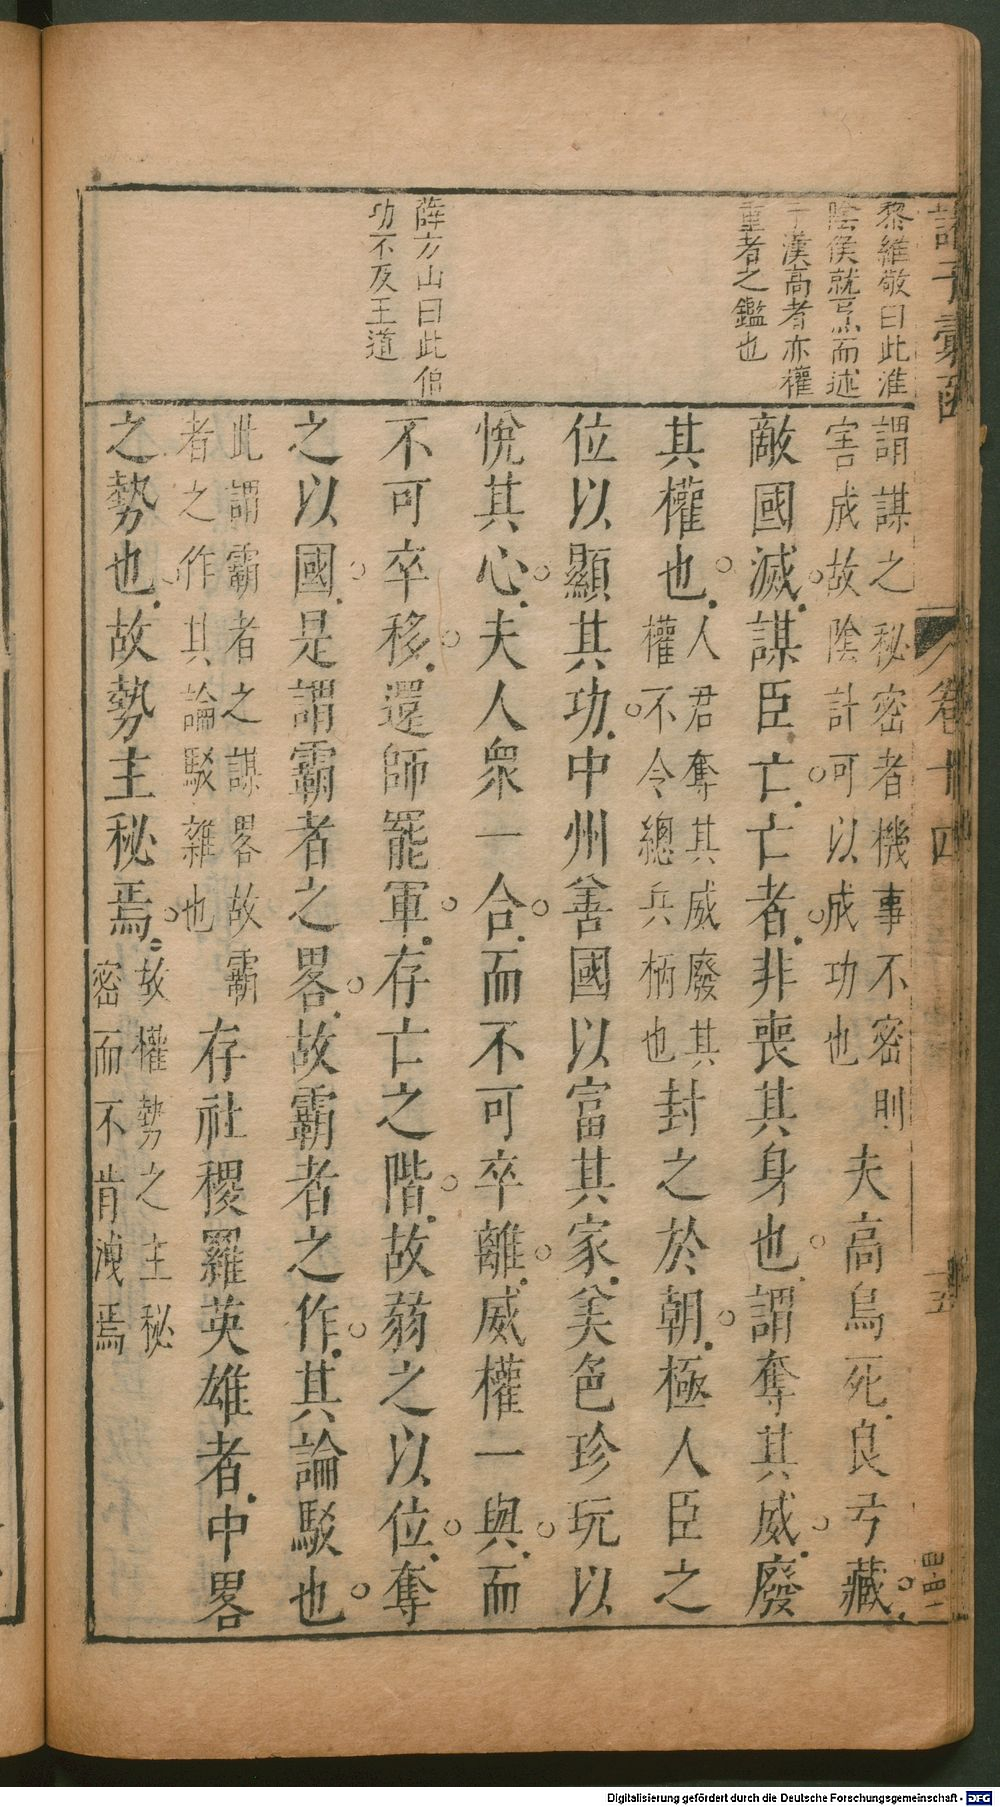 諸子彙函
卷十四
五
黎維敬曰此淮
陰侯就烹而述
于漢高者亦權
重者之鑑也
薛方山曰此伯
功不及王道
謂謀之秘密者機事不密則
害成故陰計可以成功也
夫高鳥死良弓藏
敵國滅謀臣亡亡者非喪其身也謂奪其威廢
其權也
人君奪其威廢其
權不令總兵柄也
封之於朝極人臣之
位以顯其功中州善國以富其家美色珍玩以
悅其心夫人衆一合而不可卒離威權一與而
不可卒移還師罷軍存亡之階故弱之以位奪
之以國是謂霸者之畧故霸者之作其論駁也
此謂霸者之謀畧故霸
者之作其論駁雜也
存社稷羅英雄者中畧
之勢也故勢主秘焉
故權勢之主秘
密而不肯洩焉
Digitalisierung gefördert durch die Deutsche Forschungsgemeinschaft - DFG